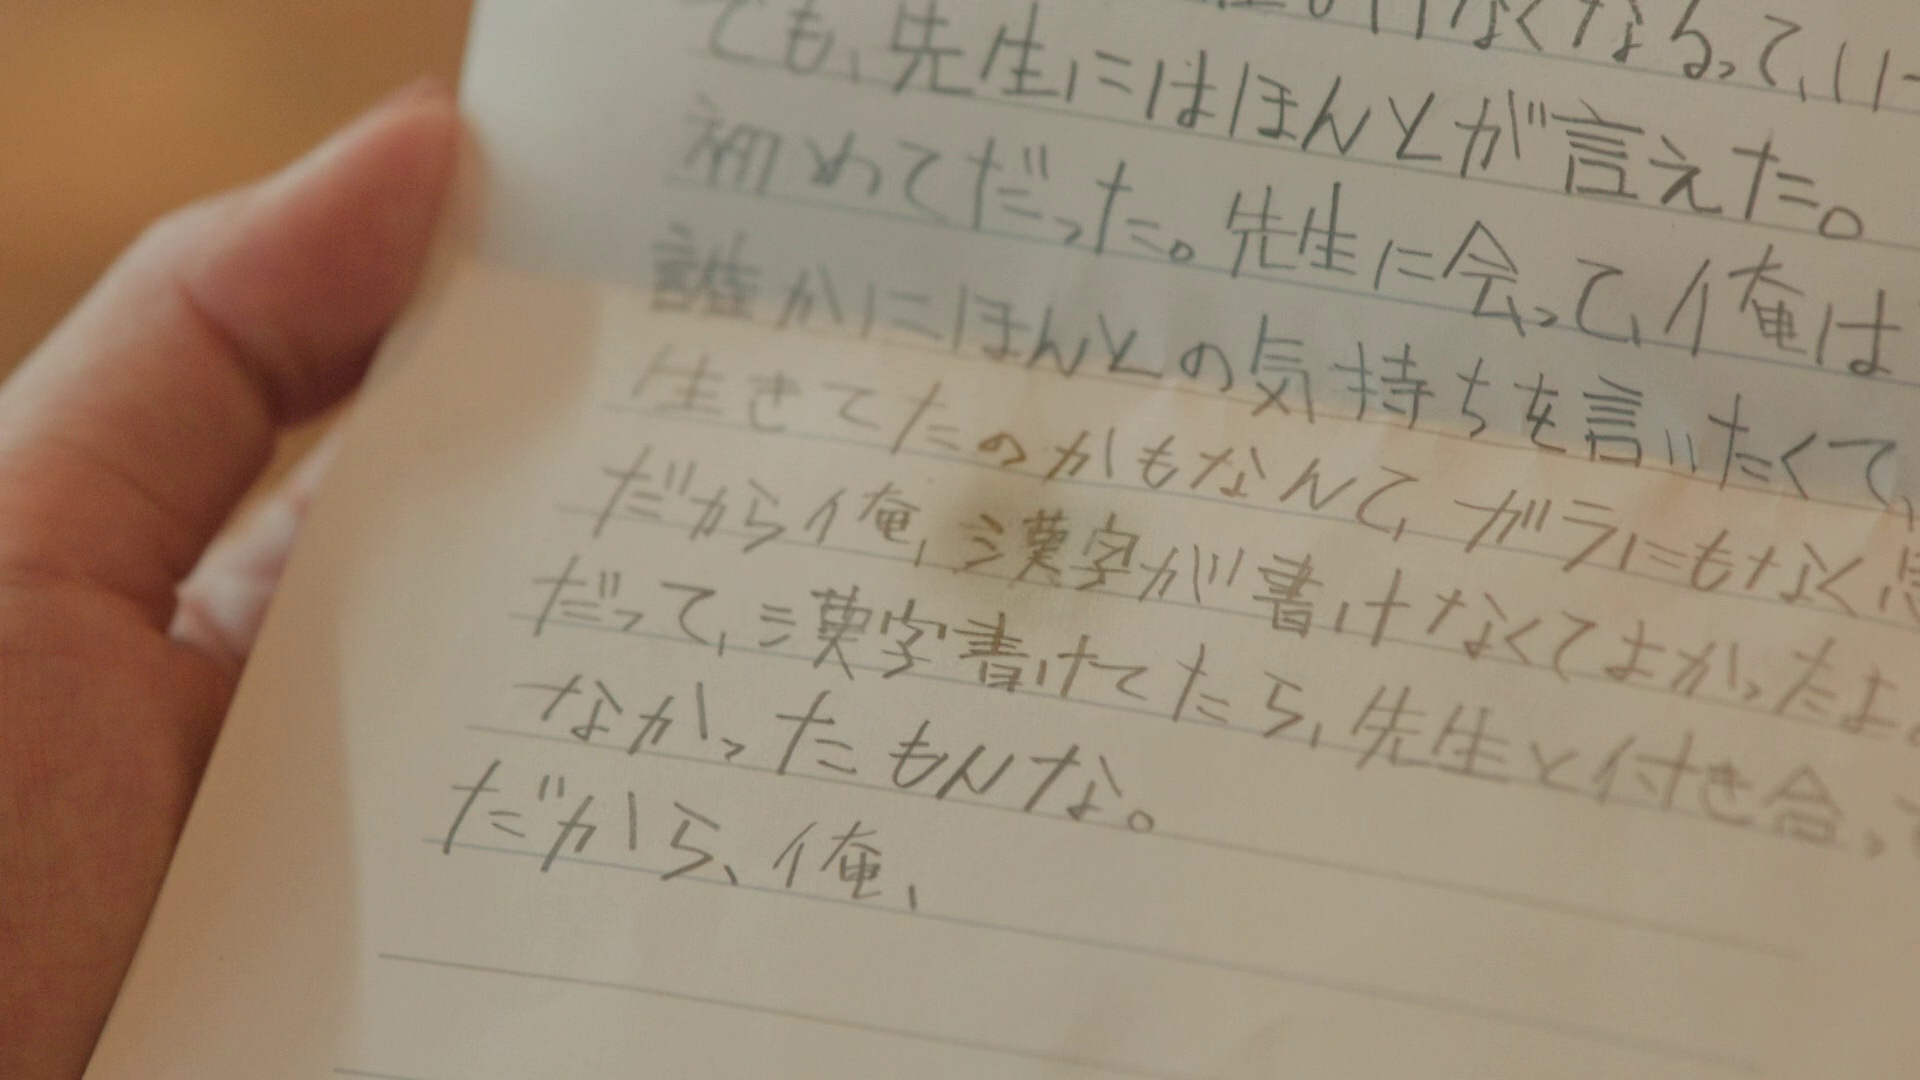 なくなるって、い
でも、先生にはほんとが言えた。
初めてだった。先生に会って、俺は
誰かにほんとの気持ちを言いたくて、
生きてたのかもなんて、ガラにもなく思
だから俺、漢字が書けなくてよかったよ。
だって、漢字書けてたら、先生と付き合って
なかったもんな。
だから、俺、